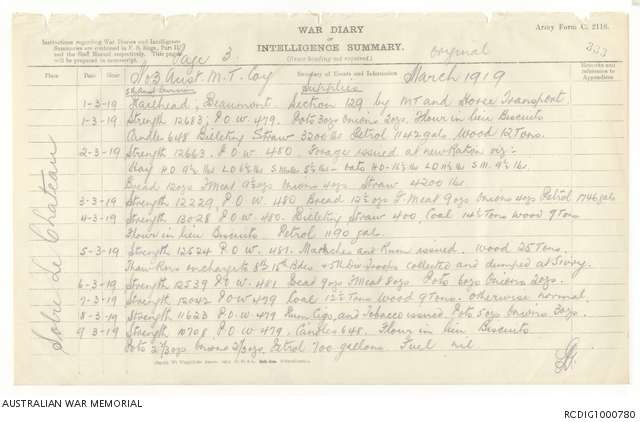 WAR DIARY
Army Form C. 2118.
Instructions regarding War Diaries and Intelligence
Summaries are contained in F. S. Regs., Part II.
and the Staff Manual respectively. Title pages
will be prepared in manuscript.
or
INTELLIGENCE SUMMARY.
(Erase heading not required).
Page 3
Original
333
Place
Date
Hour
Summary of Events and Information
Remarks and references to Appendices
No 3 Aust. M.T. Coy
March 1919
Supplies
Sobre Le Chateau
1-3-19 Railhead, Beaumont. Section 129 by M.T. and Horse Transport.
1-3-19 Strength 12683; P.O.W. 479. Pots 3ozs Onions 2ozs. Flour in lieu Biscuits
Candles 648 Billeting Straw 3200 lbs Petrol 1142 gals Wood 12 Tons.
2-3-19 Strength 12663. P.O.W. 480. Forage issued at new Ration viz:-
Hay H.D. 9½ lbs L.D. 6½ lbs S. mules 5½ lbs - Oats H.D. 15½ lbs L.D. 11½ lbs S.M. 9½ lbs
Bread 12ozs F Meat 9ozs Onions 4ozs Straw 4200 lbs.
3-3-19 Strength 12229. P.O.W. 480 Bread 12½ozs F. Meat 9ozs Onions 4ozs Petrol 1746 gals
4-3-19 Strength 13028 P.O.W. 480. Billeting Straw 400, Coal 14½ Tons Wood 9 Tons
Flour in lieu Biscuits Petrol 1190 gal.
5-3-19 Strength 12524 P.O.W. 481. Matches and Rum issued. Wood 25 Tons.
Iron Rons on charge to 8th 15th Bdes & 5th Div Troops collected and dumped at Sivry.
6-3-19 Strength 12539 P.O.W. 481 Bread 9ozs F Meat 8ozs Pots 6ozs Onions 2ozs.
7-3-19 Strength 12042 P.O.W. 479 Coal 12½ Tons Wood 9 Tons. Otherwise normal.
8-3-19 Strength 11623 P.O.W. 479 Rum, Cigs, and Tobacco issued. Pots 5ozs Onions 2ozs.
9-3-19 Strength 10708. P.O.W. 479. Candles 648. Flour in lieu Biscuits
Pots 2⅓ozs Onions ⅔ozs Petrol 700 gallons. Fuel nil
AUSTRALIAN WAR MEMORIAL
RCDIG1000780